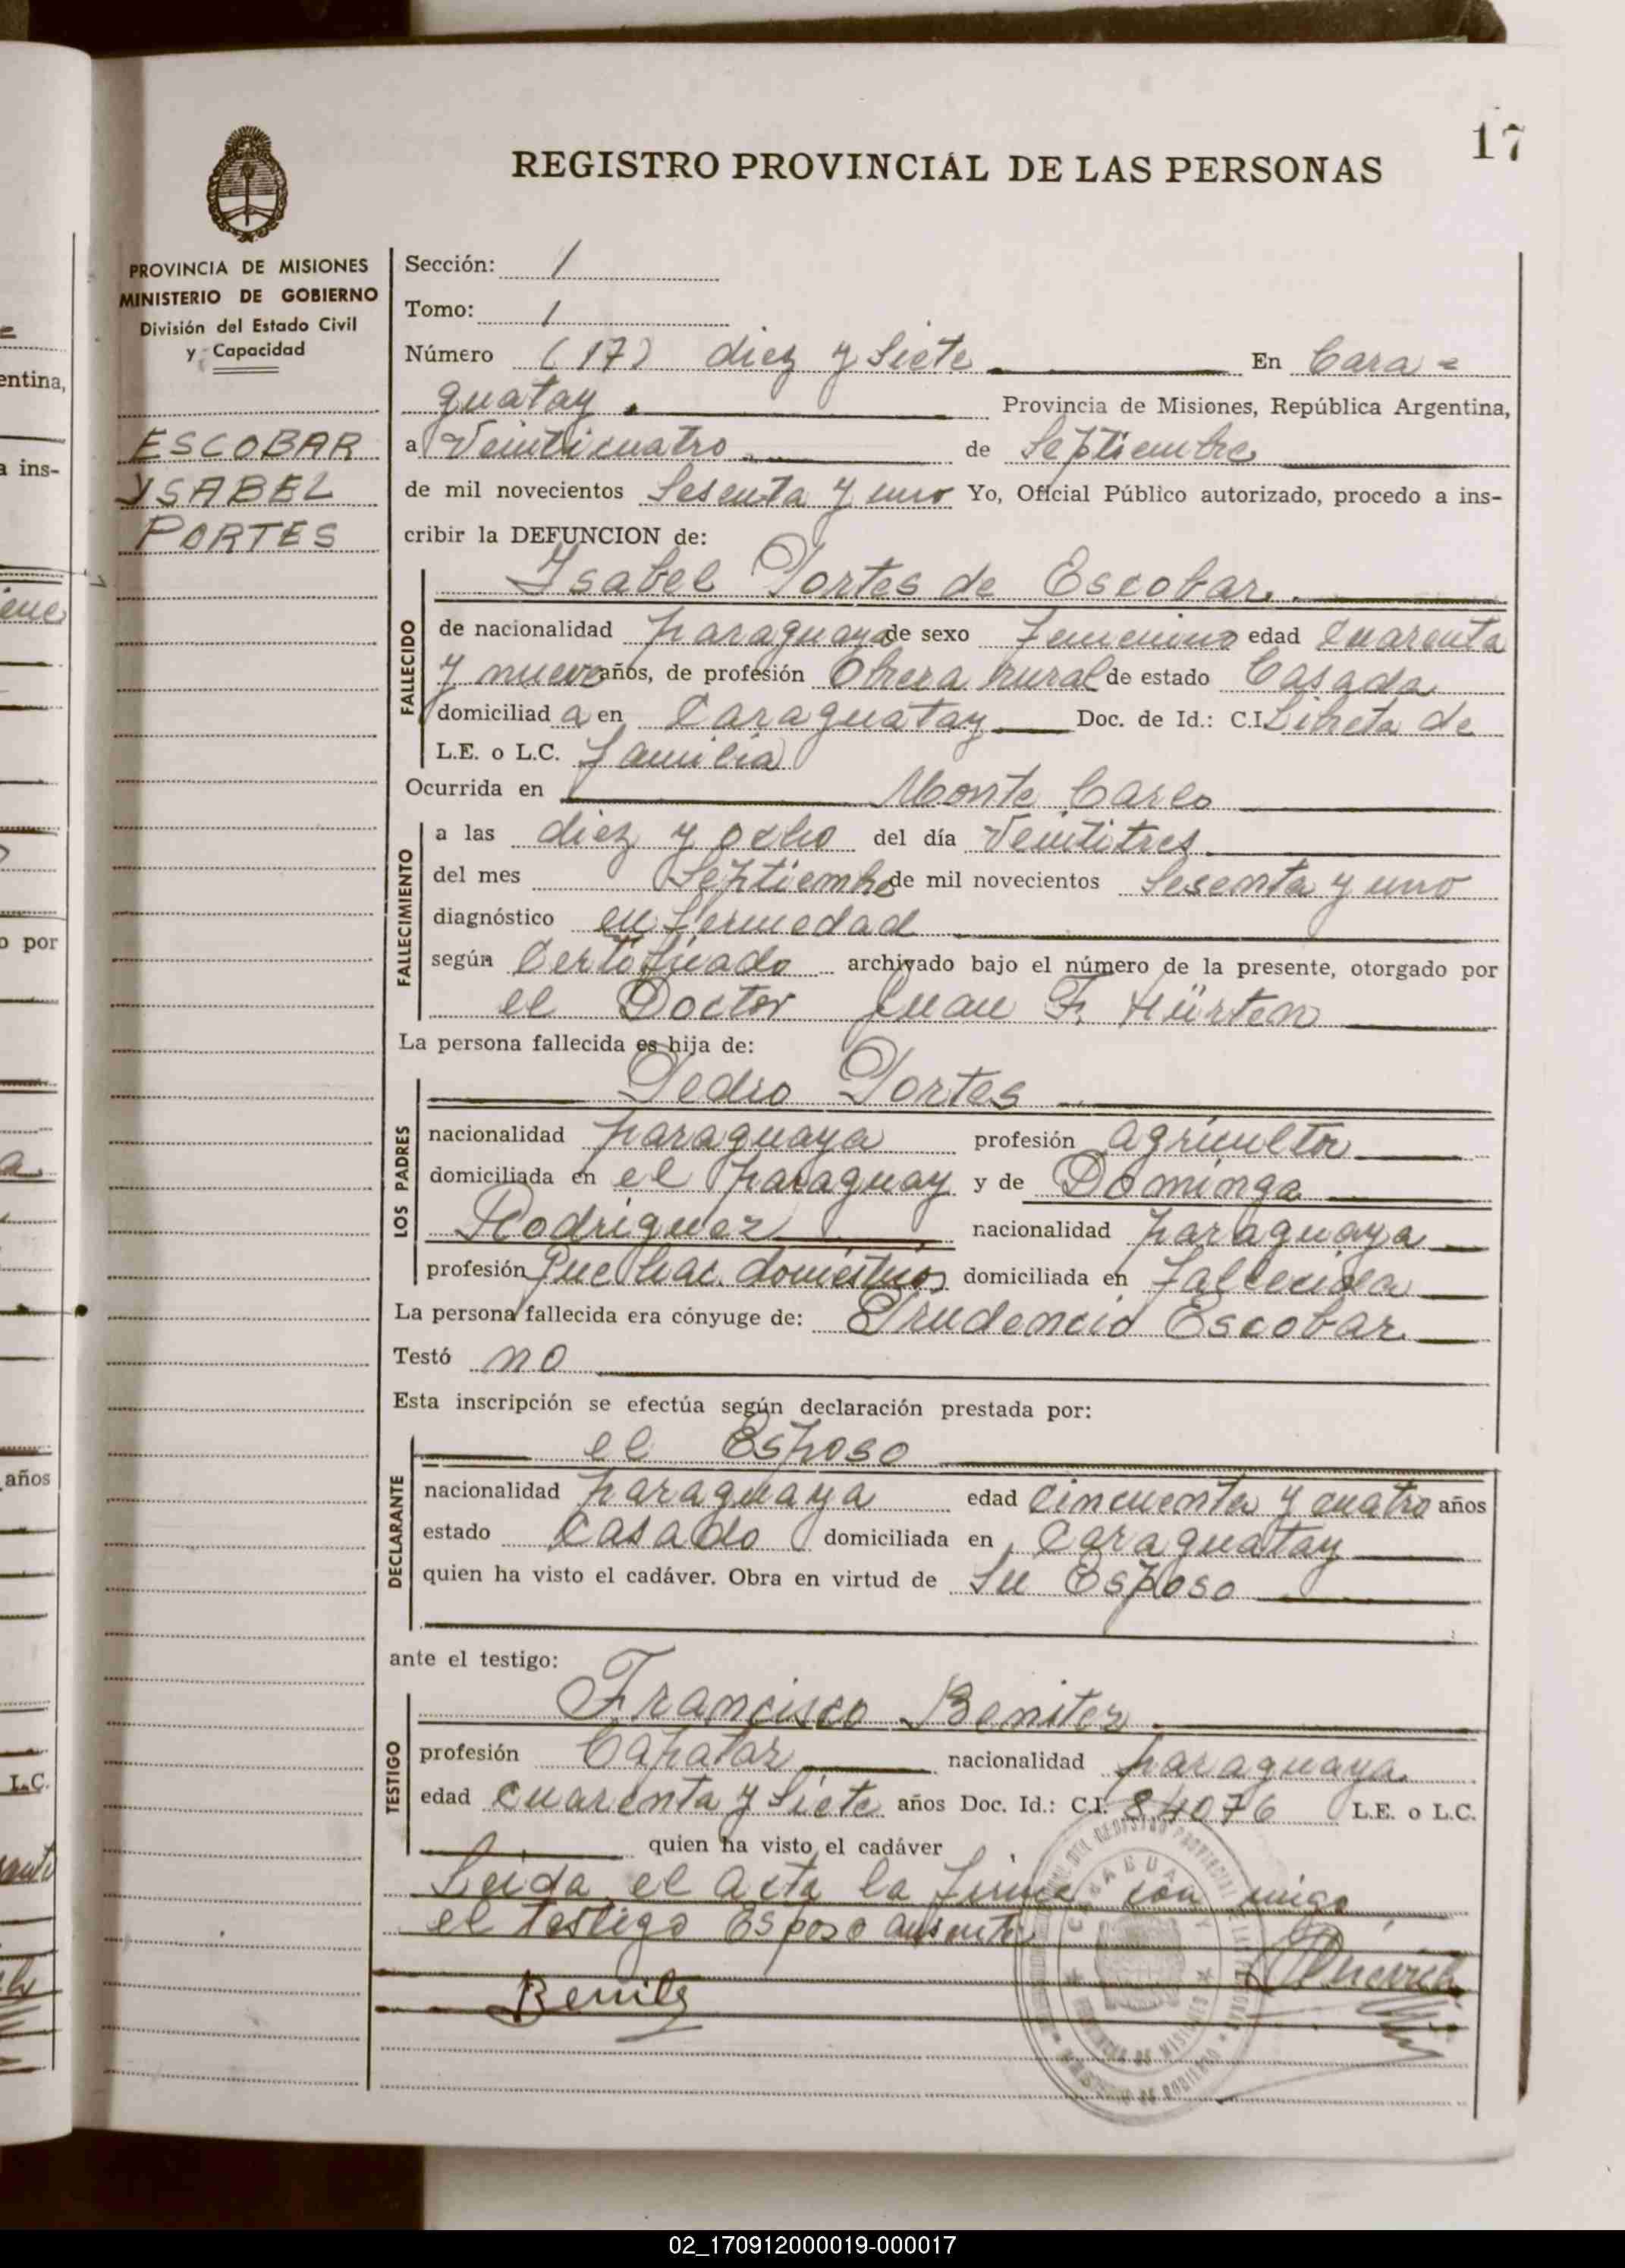 17
REGISTRO PROVINCIAL DE LAS PERSONAS
PROVINCIA DE MISIONES
MINISTERIO DE GOBIERNO
División del Estado Civil
y Capacidad
ESCOBAR
YSABEL
PORTES
Sección: 1
Tomo: 1
Número (17) diez y siete En Cara=
guatay. Provincia de Misiones, República Argentina,
a Veinticuatro de Septiembre
de mil novecientos Sesenta y uno Yo, Oficial Público autorizado, procedo a ins-
cribir la DEFUNCION de:
Ysabel Portes de Escobar.
FALLECIDO
de nacionalidad paraguaya de sexo femenino edad Cuarenta
y nueve años, de profesión Obrera rural de estado Casada
domiciliad a en Caraguatay Doc. de Id.: C.I. Libreta de
L.E. o L.C. familia
Ocurrida en Monte Carlo
FALLECIMIENTO
a las diez y ocho del día Veintitres
del mes Septiembre de mil novecientos Sesenta y uno
diagnóstico enfermedad
según Certificado archivado bajo el número de la presente, otorgado por
el Doctor Juan F. Hürten
La persona fallecida es hija de:
Pedro Portes
LOS PADRES
nacionalidad paraguaya profesión agricultor
domiciliada en el paraguay y de Dominga
Rodriguez nacionalidad paraguaya
profesión Quehac. domésticos domiciliada en fallecida
La persona fallecida era cónyuge de: Prudencio Escobar
Testó no
Esta inscripción se efectúa según declaración prestada por:
el Esposo
DECLARANTE
nacionalidad paraguaya edad Cincuenta y cuatro años
estado Casado domiciliada en Caraguatay
quien ha visto el cadáver. Obra en virtud de Su Esposo
ante el testigo:
Francisco Benitez
TESTIGO
profesión Capataz nacionalidad paraguaya
edad cuarenta y siete años Doc. Id.: C.I. 84076 L.E. o L.C.
quien ha visto el cadáver
Leida el acta la firma con migo
el testigo Esposo ausente
Benitez
entina,
a ins-
o por
años
L.C.
02_170912000019-000017